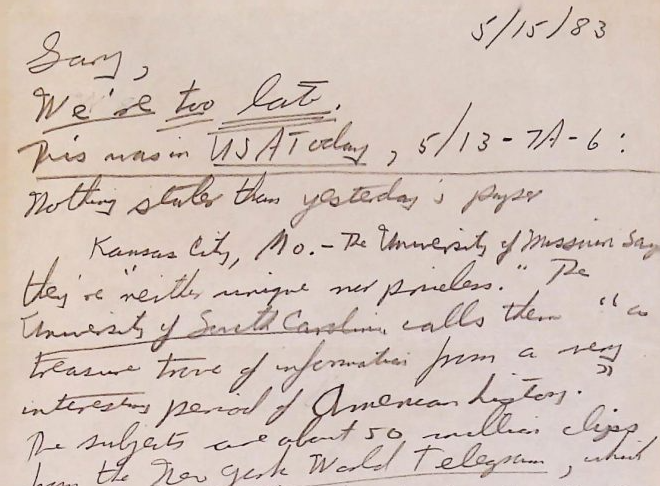 5/15/83
Gary,
We're too late.
This was in USA Today, 5/13-7A-6:
Nothing staler than yesterday's paper
Kansas City, Mo. - The University of Missouri says
they're "neither unique nor priceless." The
University of South Carolina calls them "a
treasure trove of information from a very
interesting period of American history."
The subjects are about 50 million clips
from the New York World Telegram, which